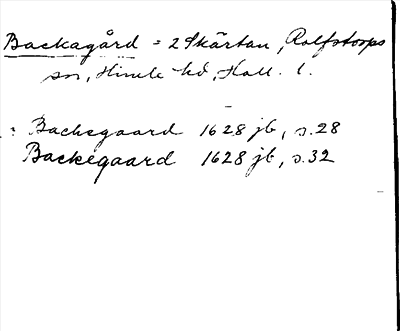 Backagård = 2 Skärtan, Rolfstorps
sn, Himle hd, Hall. l.
: Backegaard 1628 jb, s. 28
Backegaard 1628 jb, s. 32